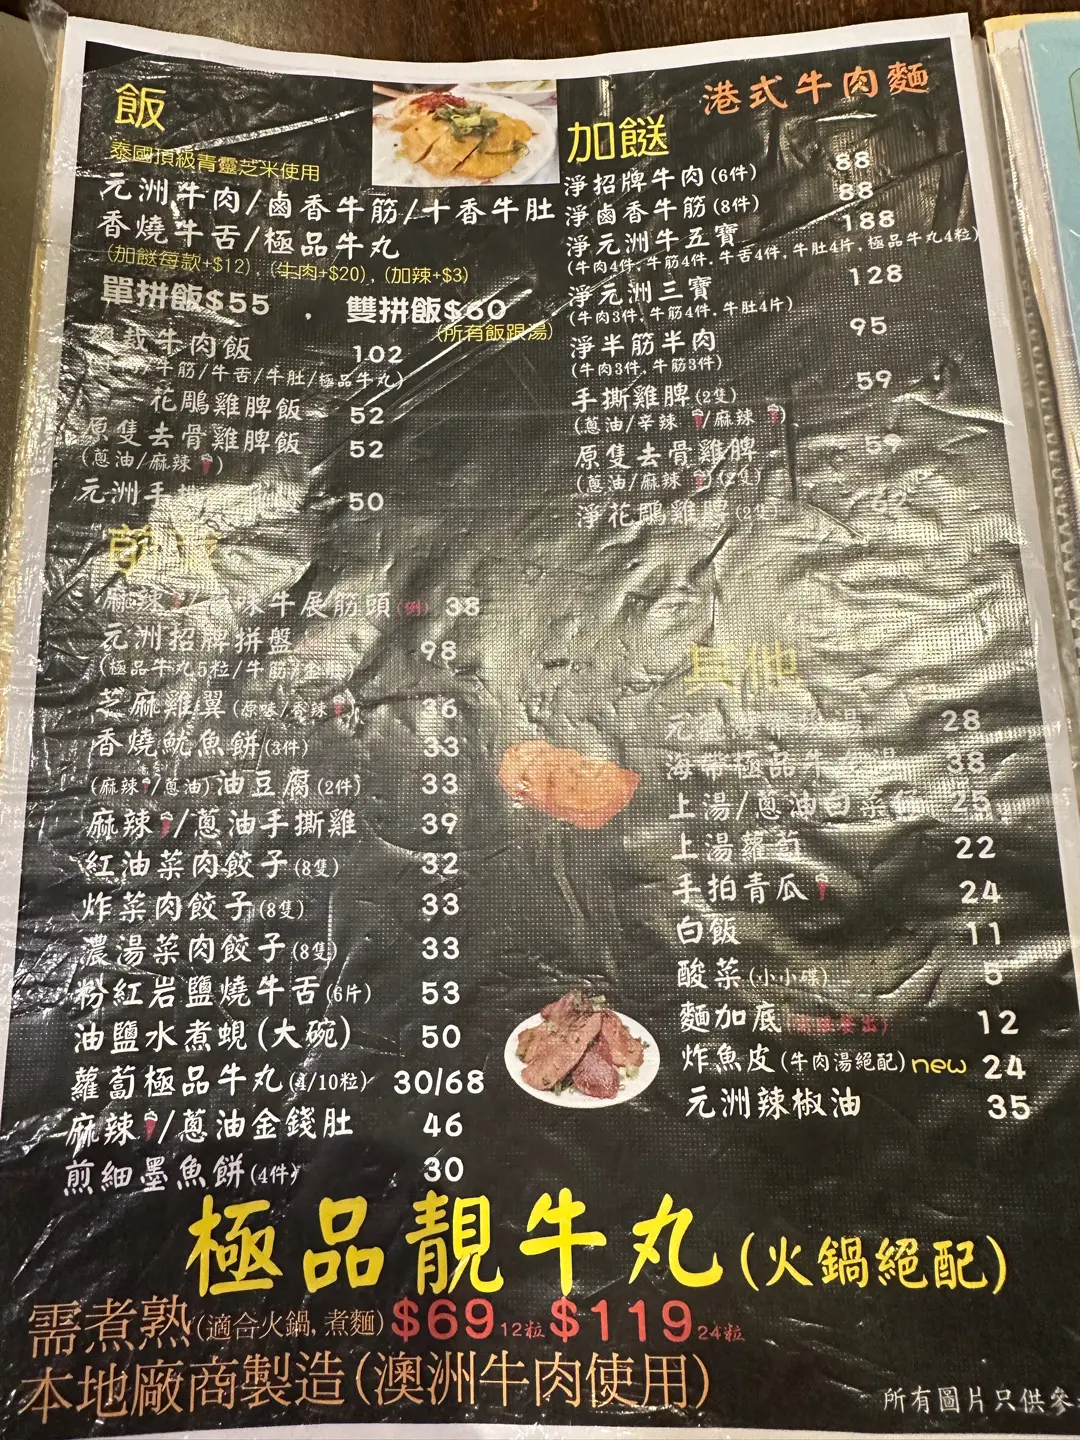 港式牛肉麵
飯
泰國頂級青靈芝米使用
元洲牛肉/鹵香牛筋/十香牛肚
香燒牛舌/極品牛丸
(加餸每款+$12),(牛肉+$20),(加辣+$3)
單拼飯$55 , 雙拼飯$60
(所有飯跟湯)
牛肉飯 102
牛筋/牛舌/牛肚/極品牛丸)
花雕雞脾飯 52
原隻去骨雞脾飯 52
(蔥油/麻辣)
元洲手 50
麻辣 牛展筋頭(例) 38
元洲招牌拼盤 98
(極品牛丸5粒/牛筋/
芝麻雞翼(原味/香辣) 36
香燒魷魚餅(3件) 33
(麻辣/蔥油)油豆腐(2件) 33
麻辣/蔥油手撕雞 39
紅油菜肉餃子(8隻) 32
炸菜肉餃子(8隻) 33
濃湯菜肉餃子(8隻) 33
粉紅岩鹽燒牛舌(6片) 53
油鹽水煮蜆(大碗) 50
蘿蔔極品牛丸(4/10粒) 30/68
麻辣/蔥油金錢肚 46
煎細墨魚餅(4件) 30
加餸
淨招牌牛肉(6件) 88
淨鹵香牛筋(8件) 88
淨元洲牛五寶 188
(牛肉4件,牛筋4件,牛舌4件,牛肚4片,極品牛丸4粒)
淨元洲三寶 128
(牛肉3件,牛筋4件,牛肚4片)
淨半筋半肉 95
(牛肉3件,牛筋3件)
手撕雞脾(2隻) 59
(蔥油/辛辣/麻辣)
原隻去骨雞脾 59
(蔥油/麻辣)(2隻)
淨花雕雞脾(2隻)
其他
元 湯 28
海帶極品牛丸湯 38
上湯/蔥油白菜 25
上湯蘿蔔 22
手拍青瓜 24
白飯 11
酸菜(小小碟) 5
麵加底 12
炸魚皮(牛肉湯絕配)new 24
元洲辣椒油 35
極品靚牛丸(火鍋絕配)
需煮熟(適合火鍋,煮麵)$69 12粒 $119 24粒
本地廠商製造(澳洲牛肉使用)
所有圖片只供參